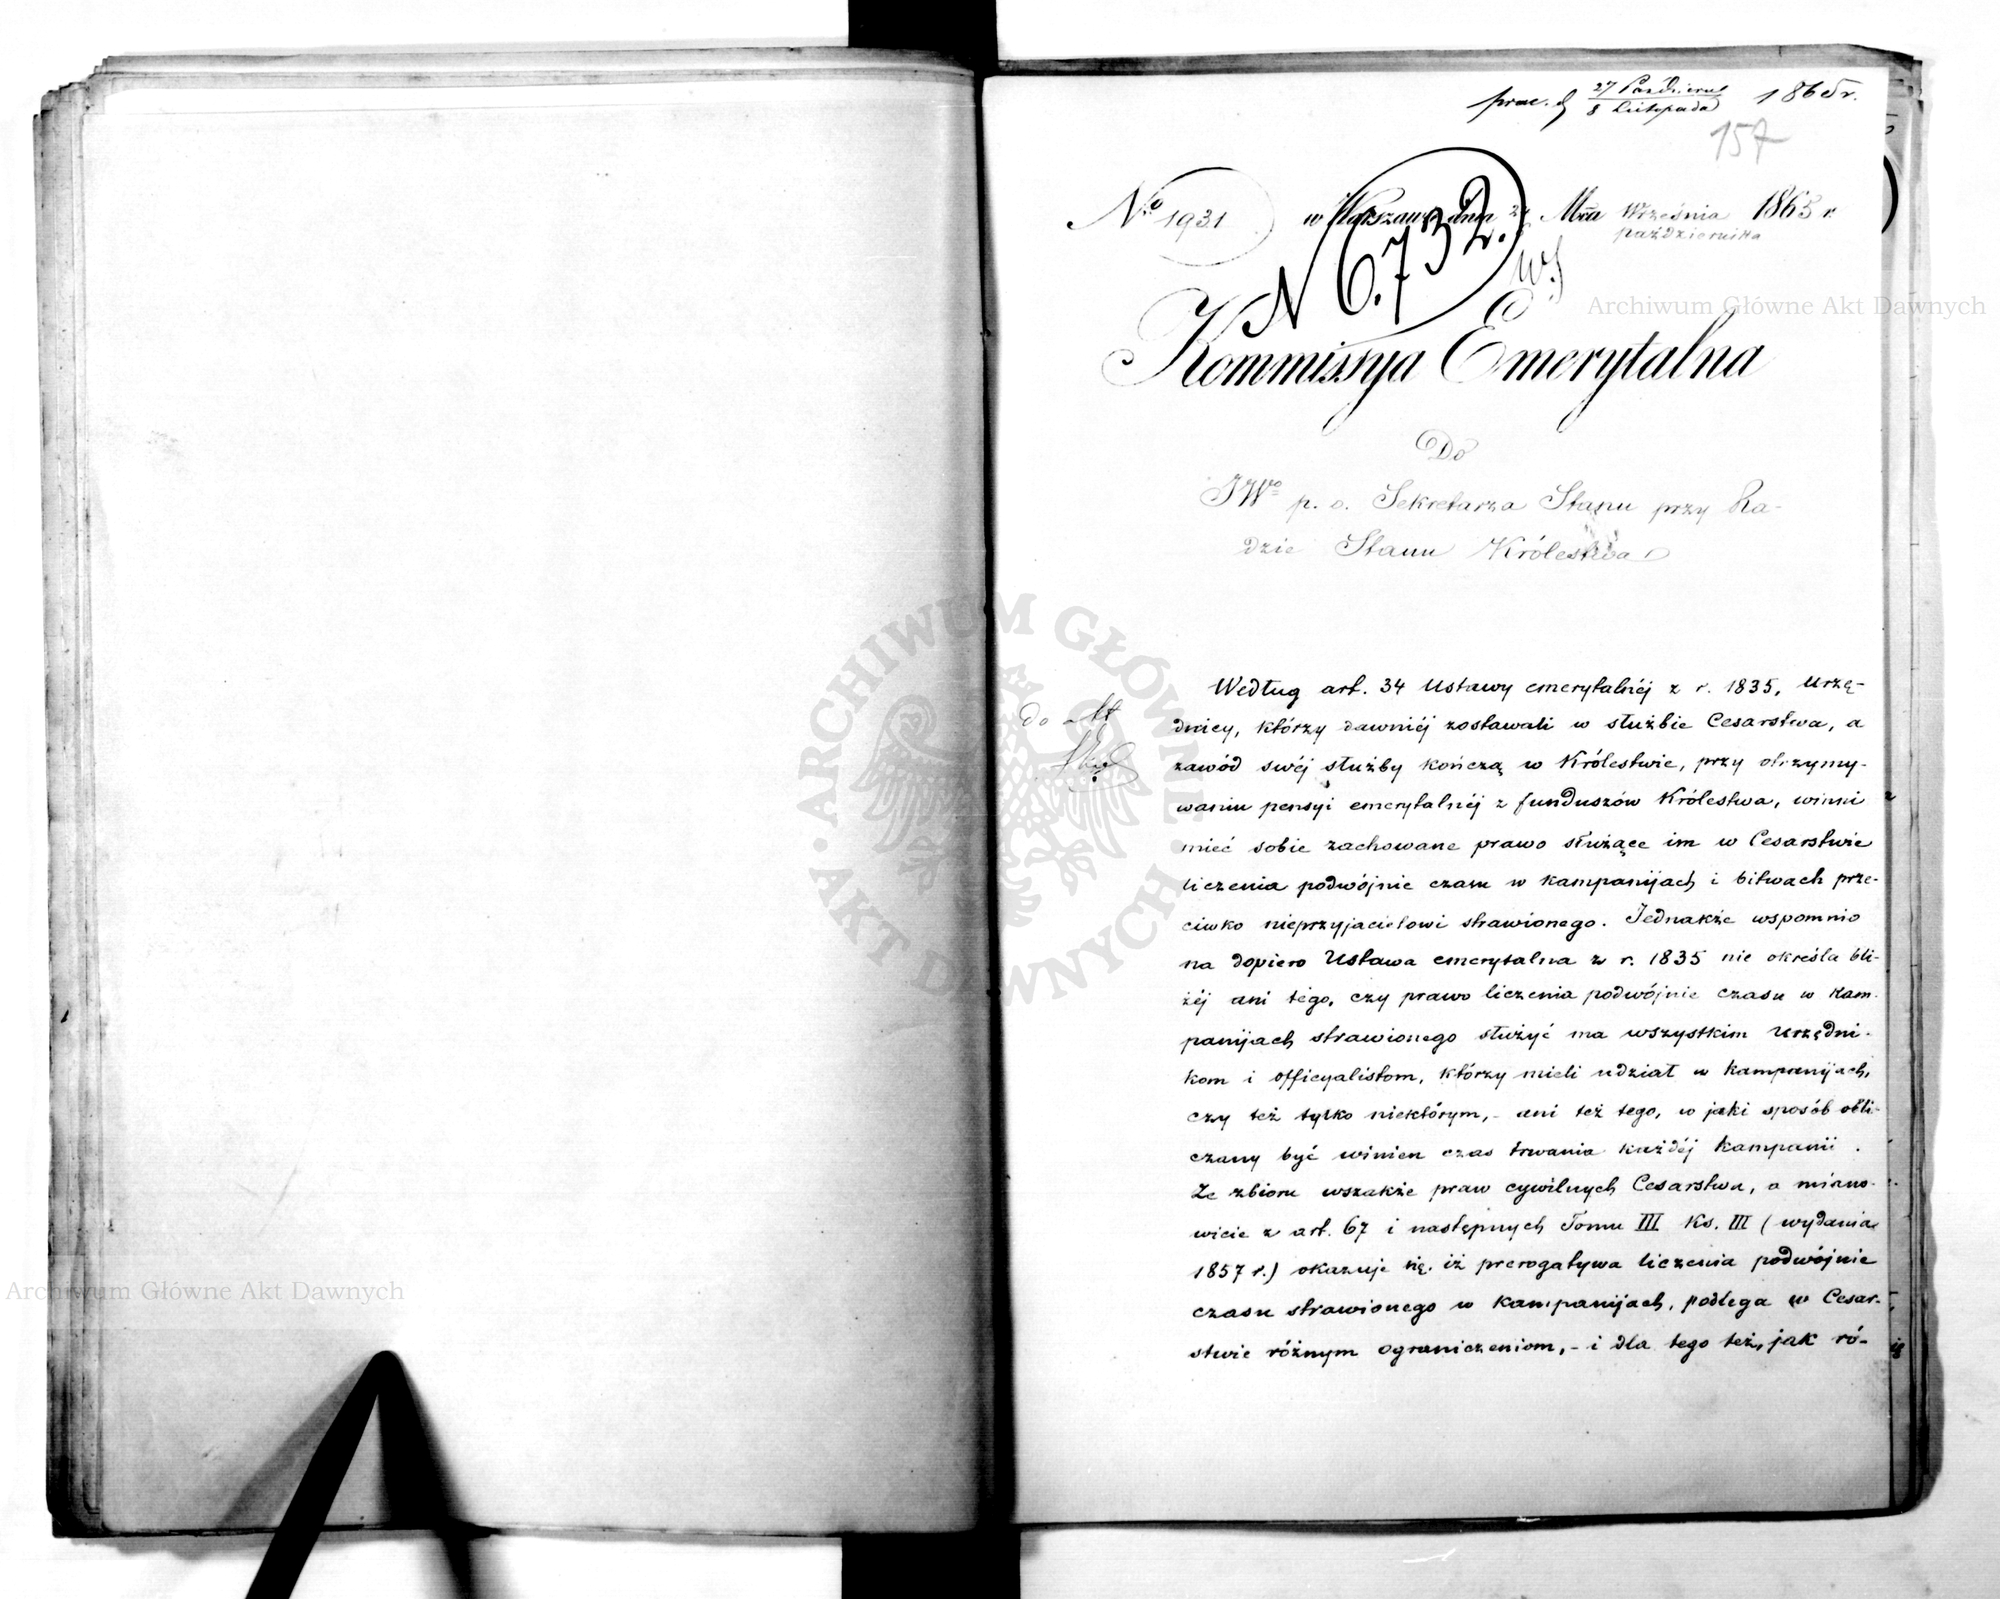 27 Październ
8 Listopada
1865 r.
157
No 1931
w Warszawie dnia Mca Września 1865 r.
października
N 6.732.
Kommissya Emerytalna
Do
JWo p. o. Sekretarza Stanu przy Ra-
dzie Stanu Królestwa
do Akt
Według art. 34 Ustawy emerytalnéj z r. 1835, Urzę-
dnicy, którzy dawniéj zostawali w służbie Cesarstwa, a
zawód swéj służby kończą w Królestwie, przy otrzymy-
waniu pensyi emerytalnéj z funduszów Królestwa, winni
mieć sobie zachowane prawo służące im w Cesarstwie
liczenia podwójnie czasu w kampanijach i bitwach prze-
ciwko nieprzyjacielowi strawionego. Jednakże wspomnio
na dopiero Ustawa emerytalna z r. 1835 nie określa bli-
żéj ani tego, czy prawo liczenia podwójnie czasu w kam-
panijach strawionego służyć ma wszystkim Urzędni-
kom i officyalistom, którzy mieli udział w kampanijach,
czy też tylko niektórym, - ani też tego, w jaki sposób obli-
czany być winien czas trwania każdéj kampanii.
Ze zbioru wszakże praw cywilnych Cesarstwa, a miano-
wicie z art. 67 i następnych Tomu III Ks. III (wydania
1857 r.) okazuje się, iż prerogatywa liczenia podwójnie
czasu strawionego w kampanijach, podlega w Cesar-
stwie różnym ograniczeniom, - i dla tego też, jak ró-
Archiwum Główne Akt Dawnych
Archiwum Główne Akt Dawnych
ARCHIWUM GŁÓWNE AKT DAWNYCH